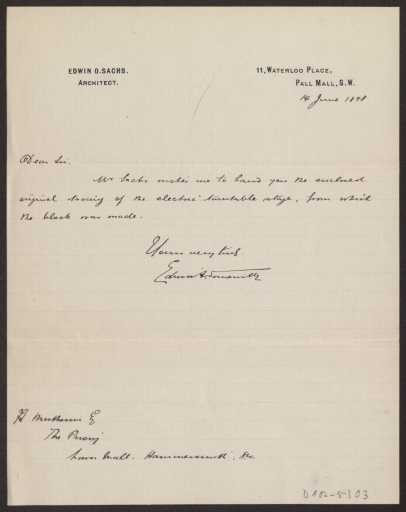 EDWIN O. SACHS.
ARCHITECT.
11, WATERLOO PLACE,
PALL MALL, S.W.
14 June 1898
Dear Sir.
Mr Sachs wishes me to hand you the enclosed
original drawing of the electric turntable stage, from which
the block was made.
Yours very truly
Edwin A.
H Muthesius Eq
The Priory
Hammersmith.
D 102-5103